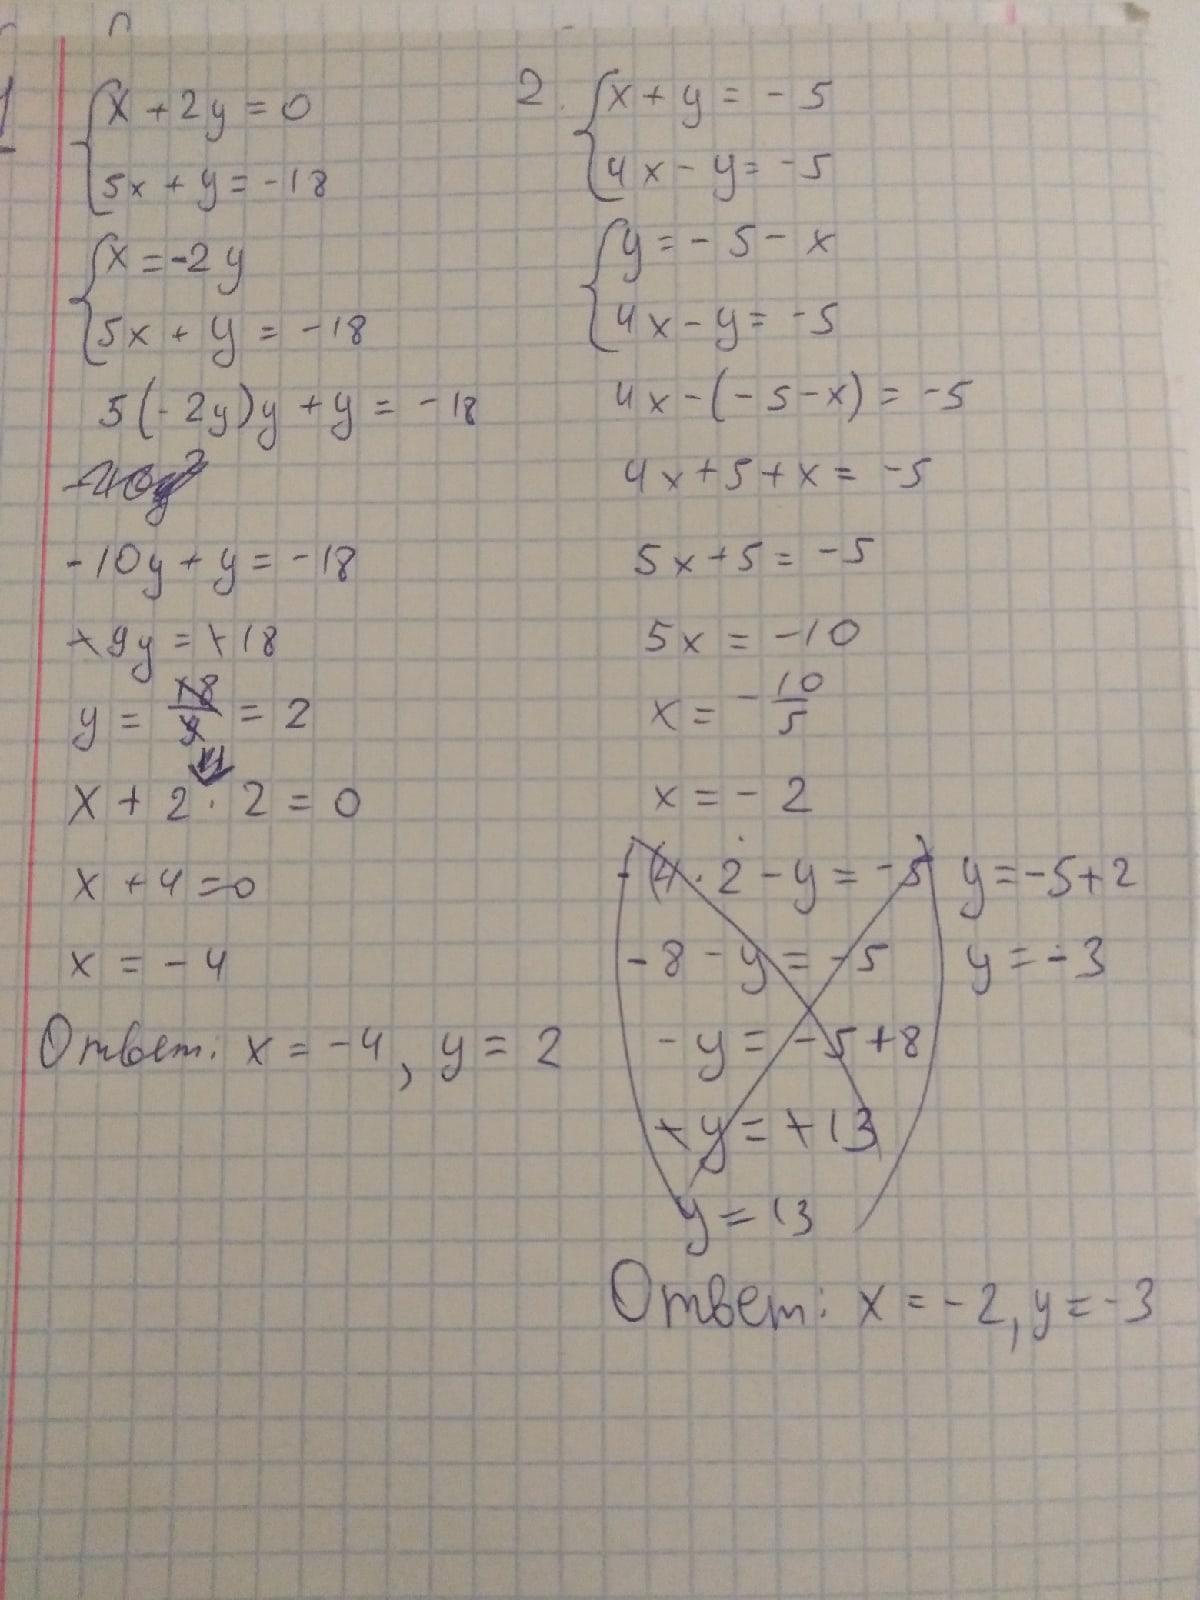 1
{x + 2y = 0
5x + y = -18
{x = -2y
5x + y = -18
5(-2y)y + y = -18
-10y + y = -18
+9y = +18
y = 18/9 = 2
x + 2 · 2 = 0
x + 4 = 0
x = -4
Ответ: x = -4, y = 2
2. {x + y = -5
4x - y = -5
{y = -5 - x
4x - y = -5
4x - (-5 - x) = -5
4x + 5 + x = -5
5x + 5 = -5
5x = -10
x = -10/5
x = -2
-(4 · 2 - y = -5)
-8 - y = -5
-y = -5 + 8
+y = +13
y = 13
y = -5 + 2
y = -3
Ответ: x = -2, y = -3